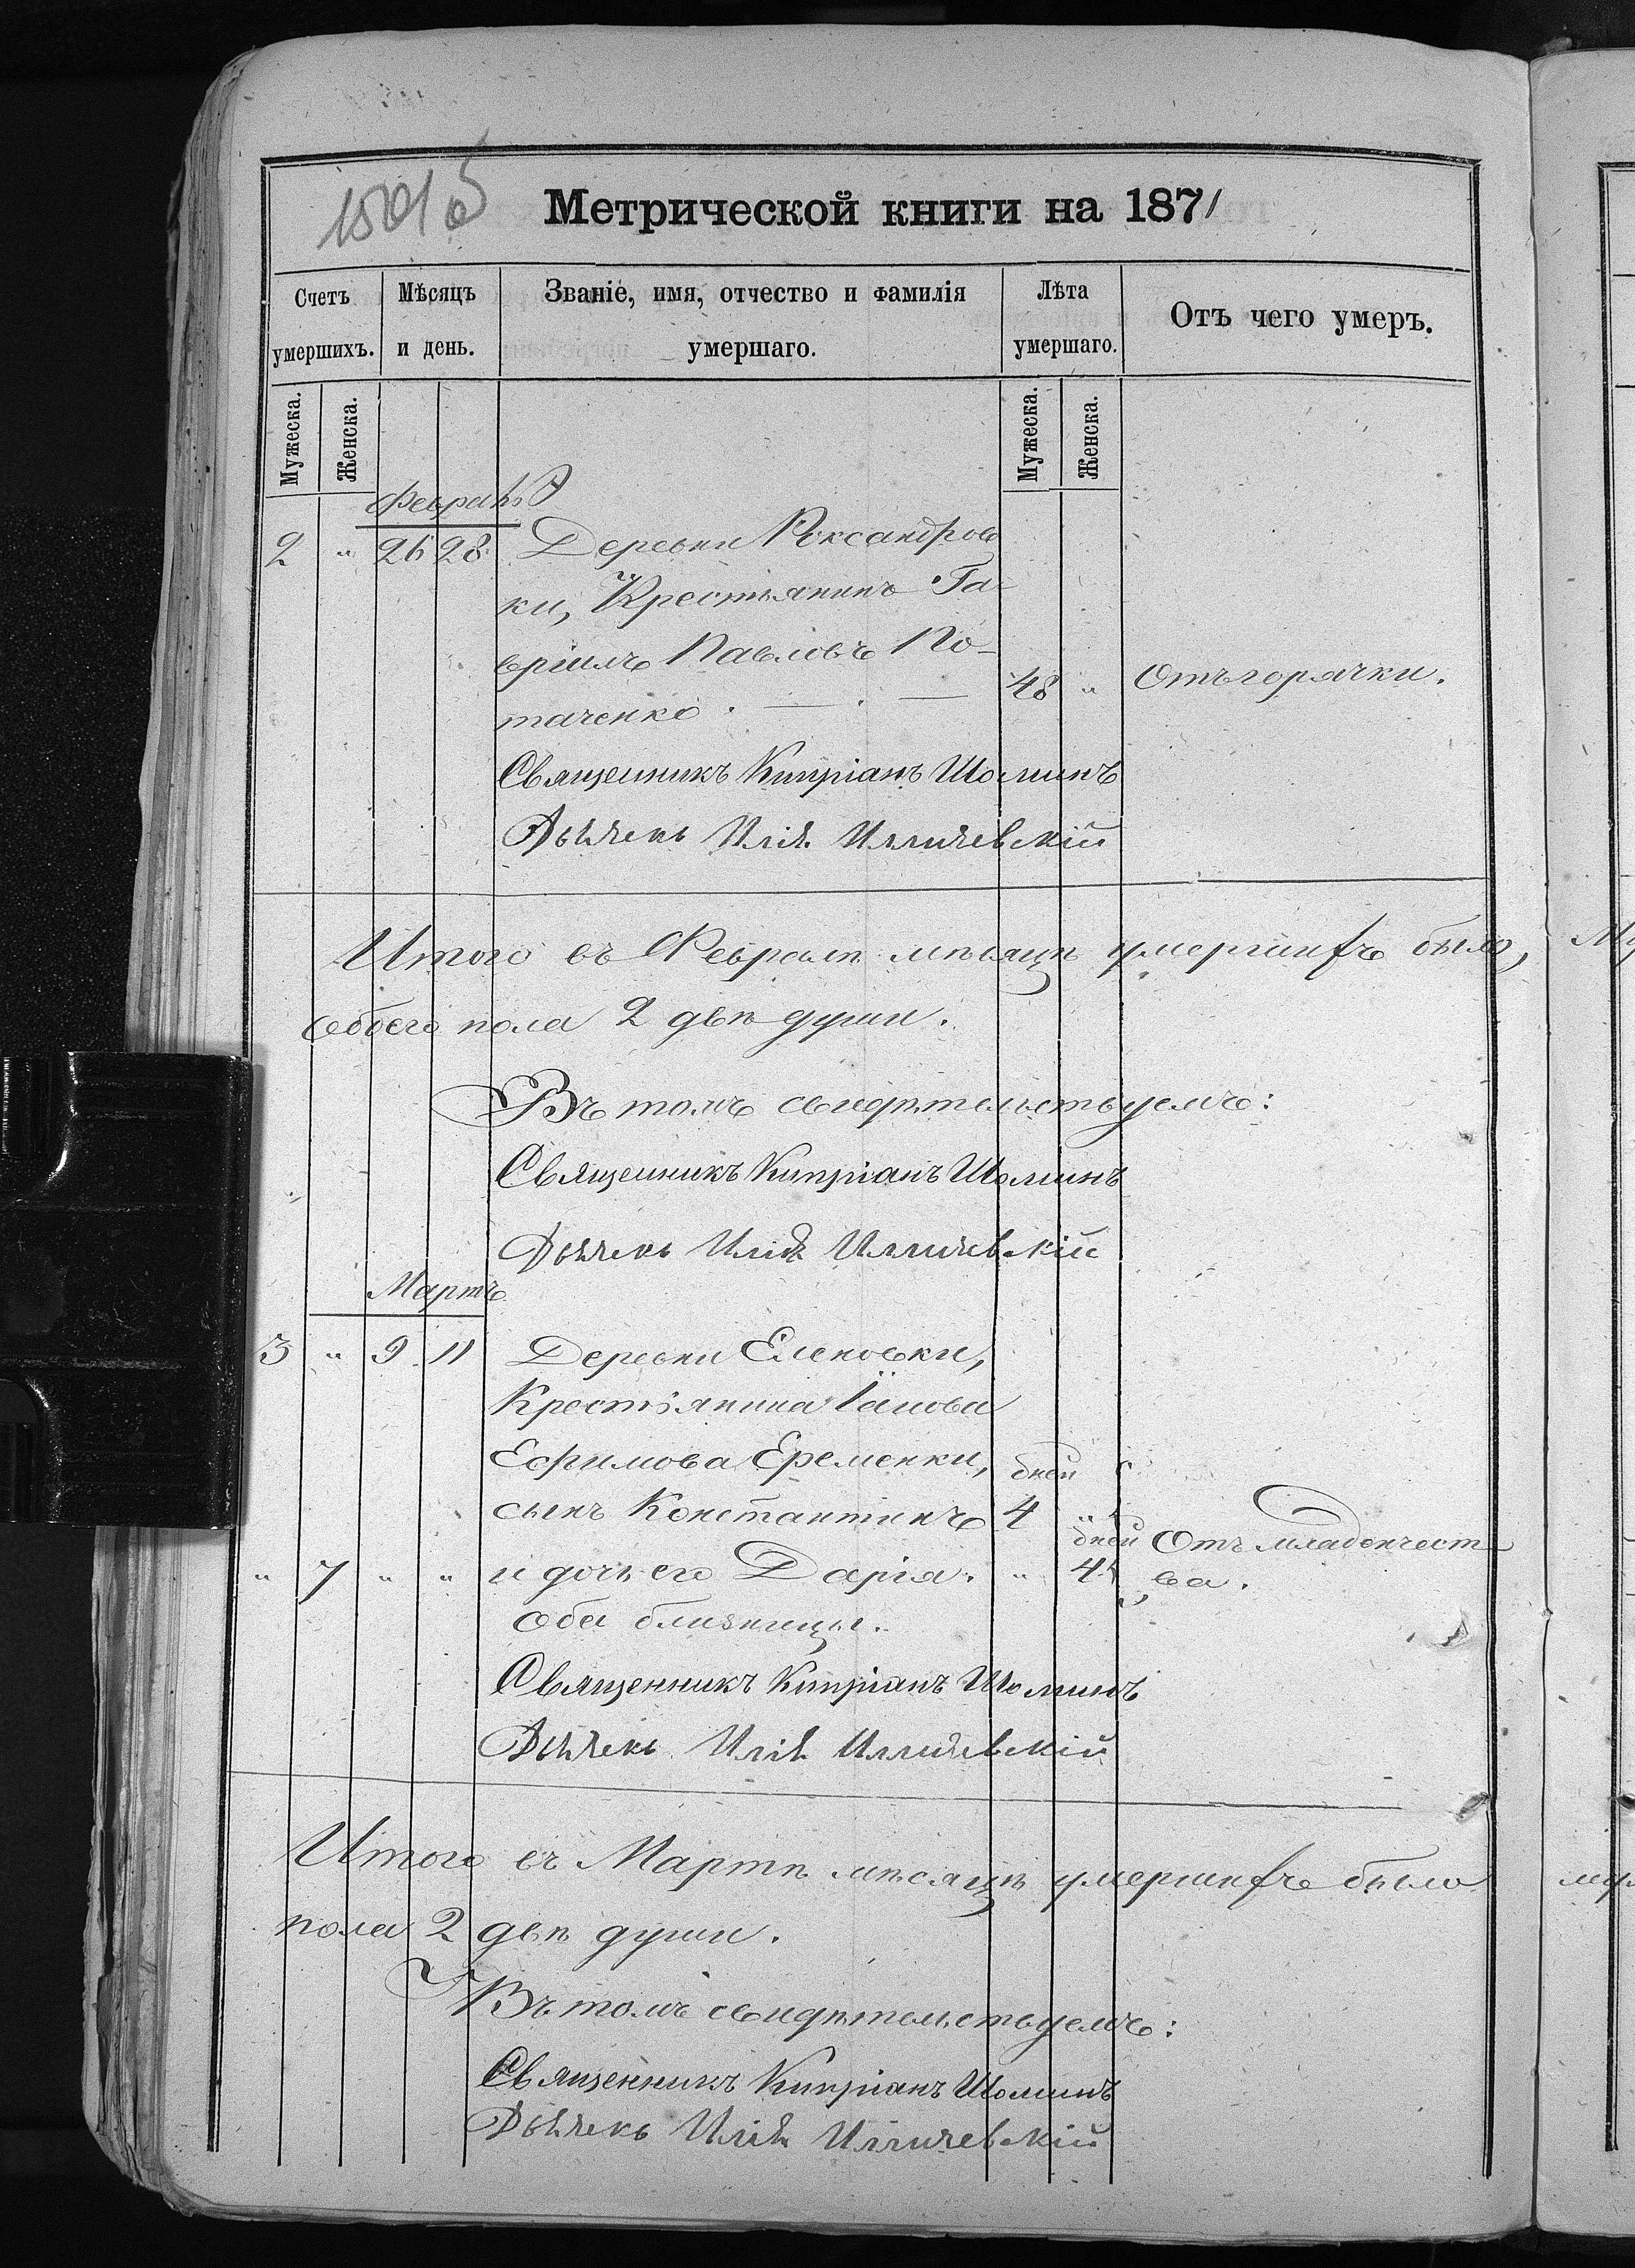 1501 об
Метрической книги на 1871
Счетъ умершихъ.
Мѣсяцъ и день.
Званіе, имя, отчество и фамилія умершаго.
Лѣта умершаго.
Отъ чего умеръ.
Мужеска. Женска. Мужеска. Женска.
Февраль
2 " 26 28 Деревни Роксандров
ки, Крестьянинъ Га-
вріилъ Павловъ По-
таченко. 48 " Отъ горячки.
Священникъ Кипріанъ Шоминъ
Дьячекъ Илія Илличевскій
Итого въ Февралѣ мѣсяцѣ умершихъ было,
обоего пола 2 двѣ души.
Въ томъ свидѣтельствуемъ:
Священникъ Кипріанъ Шоминъ
Дьячекъ Илія Илличевскій
Мартъ
3 " 9 11 Деревни Еленовки,
Крестьянина Іакова
Ефимова Еременки, дней
сынъ Константинъ 4 "
" 7 " " и дочь его Дарія. " дней 4 Отъ младенчест
ва.
Оба близнецы.
Священникъ Кипріанъ Шоминъ
Дьячекъ Илія Илличевскій
Итого въ Мартѣ мѣсяцѣ умершихъ было
пола 2 двѣ души.
Въ томъ свидѣтельствуемъ:
Священникъ Кипріанъ Шоминъ
Дьячекъ Илія Илличевскій